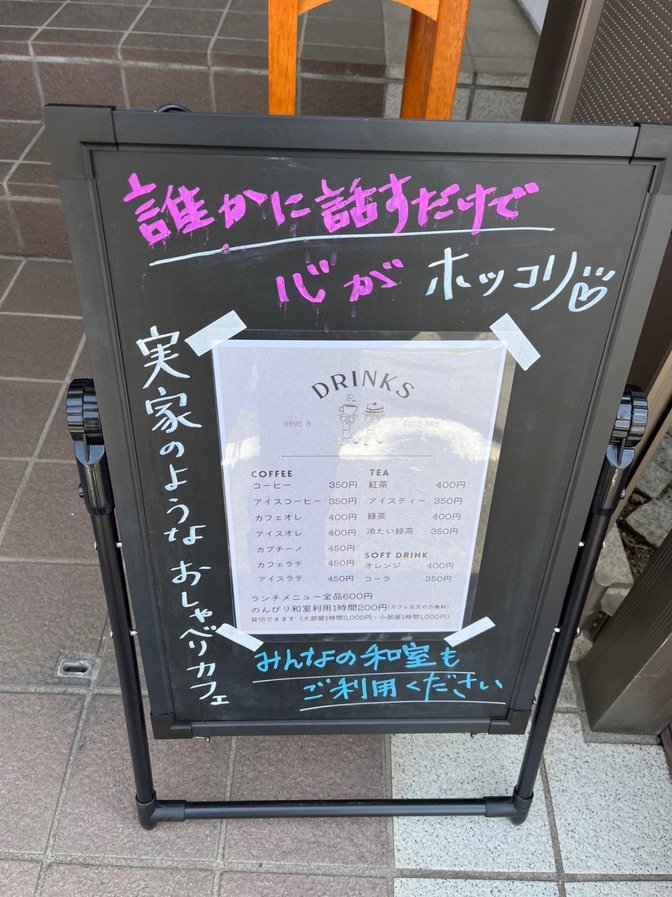 誰かに話すだけで
心が ホッコリ
実家のような おしゃべりカフェ
DRINKS
HAVE A GOOD DAY
COFFEE
コーヒー 350円
アイスコーヒー 350円
カフェオレ 400円
アイスオレ 400円
カプチーノ 450円
カフェラテ 450円
アイスラテ 450円
TEA
紅茶 400円
アイスティー 350円
緑茶 400円
冷たい緑茶 350円
SOFT DRINK
オレンジ 400円
コーラ 350円
ランチメニュー全品600円
のんびり和室利用1時間200円(カフェ注文の方無料)
貸切できます(大部屋1時間2,000円・小部屋1時間1,000円)
みんなの和室も
ご利用ください